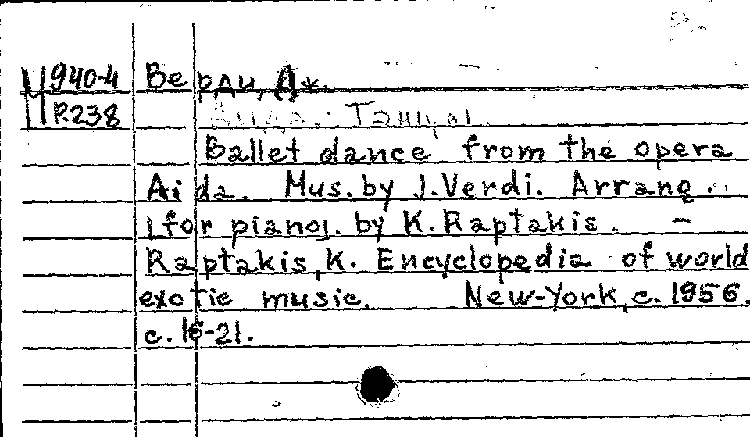 М 940-4 Верди, Дж.
R238 Аида. Танцы.
Ballet dance from the opera
Aida. Mus. by J. Verdi. Arrang.
[for piano]. by K. Raptakis. –
Raptakis, K. Encyclopedia of world
exotic music. New-York, c. 1956.
c. 16-21.